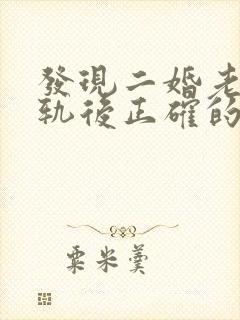 發現二婚老
軌後正確的
粟米羹